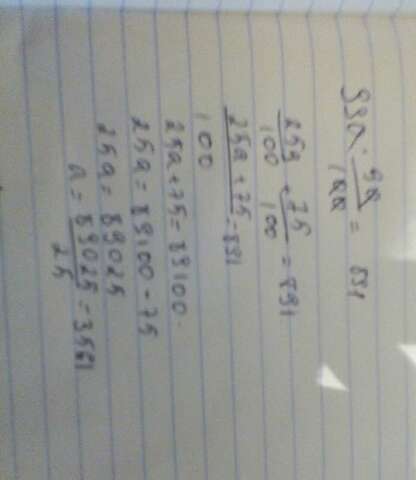 990 · 90/100 = 891
25a/100 + 75/100 = 891
25a + 75/100 = 891
25a + 75 = 89100
25a = 89100 - 75
25a = 89025
a = 89025/25 = 3561